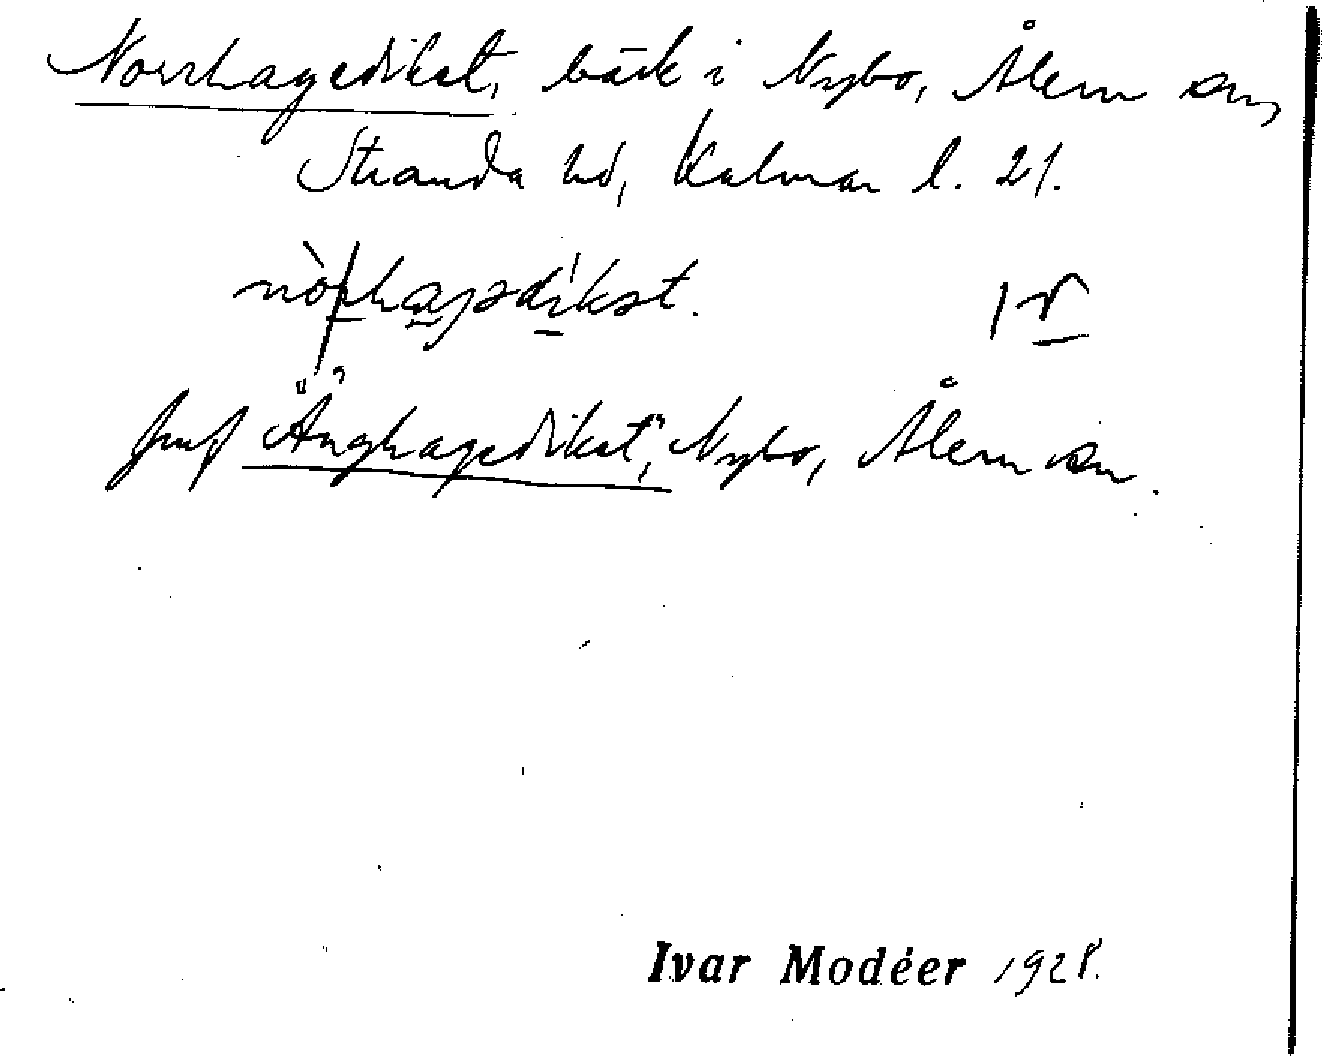 Norrhagediket, bäck i Nybo, Ålem sn,
Stranda hd, Kalmar l. 21.
jmf "Änghagediket", Nybo, Ålem sn.
Ivar Modéer 1928.